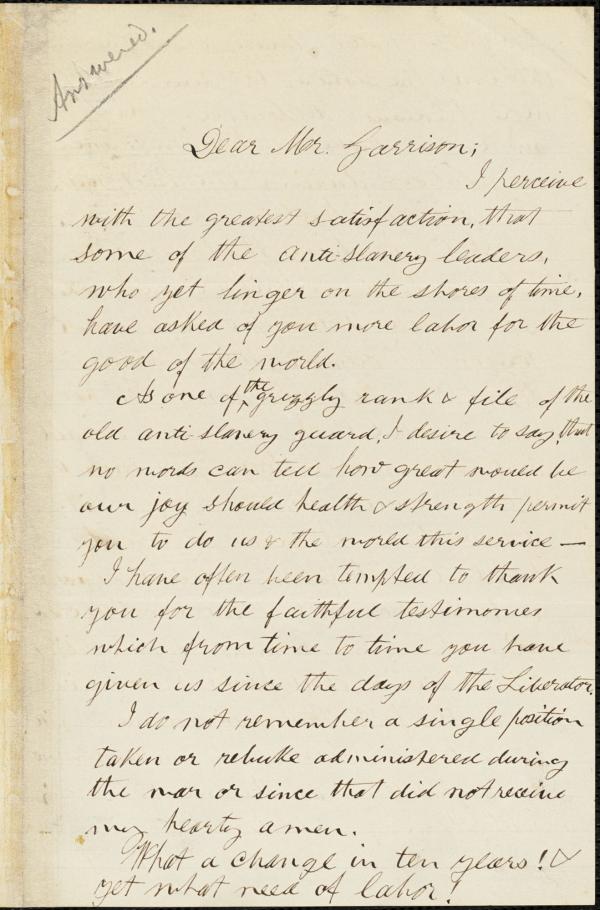 Answered.
Dear Mr. Garrison;
I perceive
with the greatest satisfaction, that
some of the anti-slavery leaders,
who yet linger on the shores of time,
have asked of you more labor for the
good of the world.
As one of the grizzly rank & file of the
old anti slavery guard, I desire to say, that
no words can tell how great would be
our joy should health & strength permit
you to do us & the world this service —
I have often been tempted to thank
you for the faithful testimonies
which from time to time you have
given us since the days of the Liberator.
I do not remember a single position
taken or rebuke administered during
the war or since that did not receive
my hearty amen.
What a change in ten years! &
yet what need of labor!